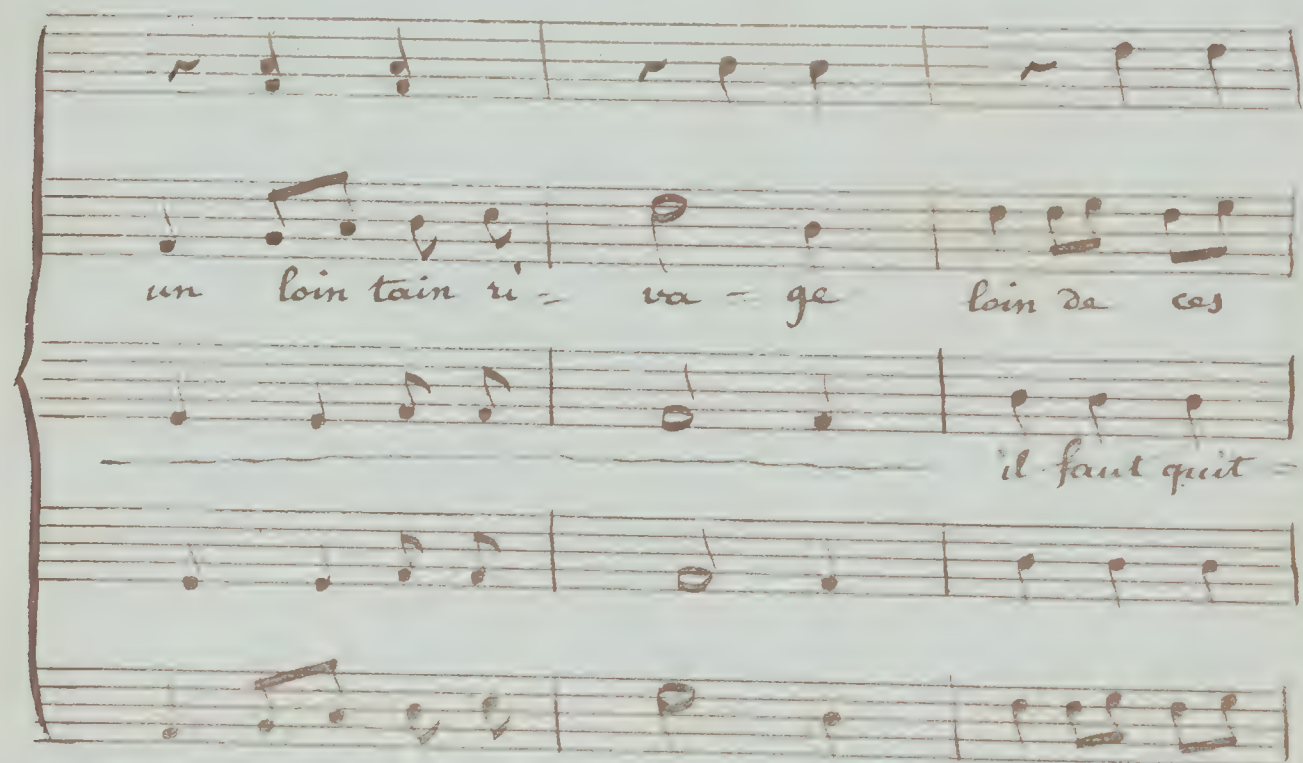 un loin tain ri - va - ge loin de ces
il faut quit -